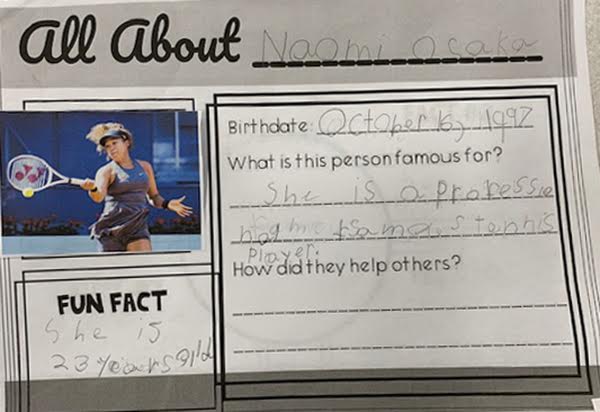 All About Naomi Osaka
Birthdate: October 16, 1997
What is this person famous for?
She is a professio
tennis
player.
How did they help others?
FUN FACT
She is
23 years old